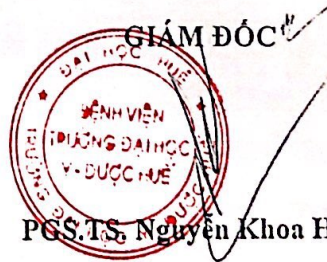 GIÁM ĐỐC
ĐẠI HỌC HUẾ
BỆNH VIỆN
TRƯỜNG ĐẠI HỌC
Y - DƯỢC HUẾ
PGS.TS. Nguyễn Khoa H